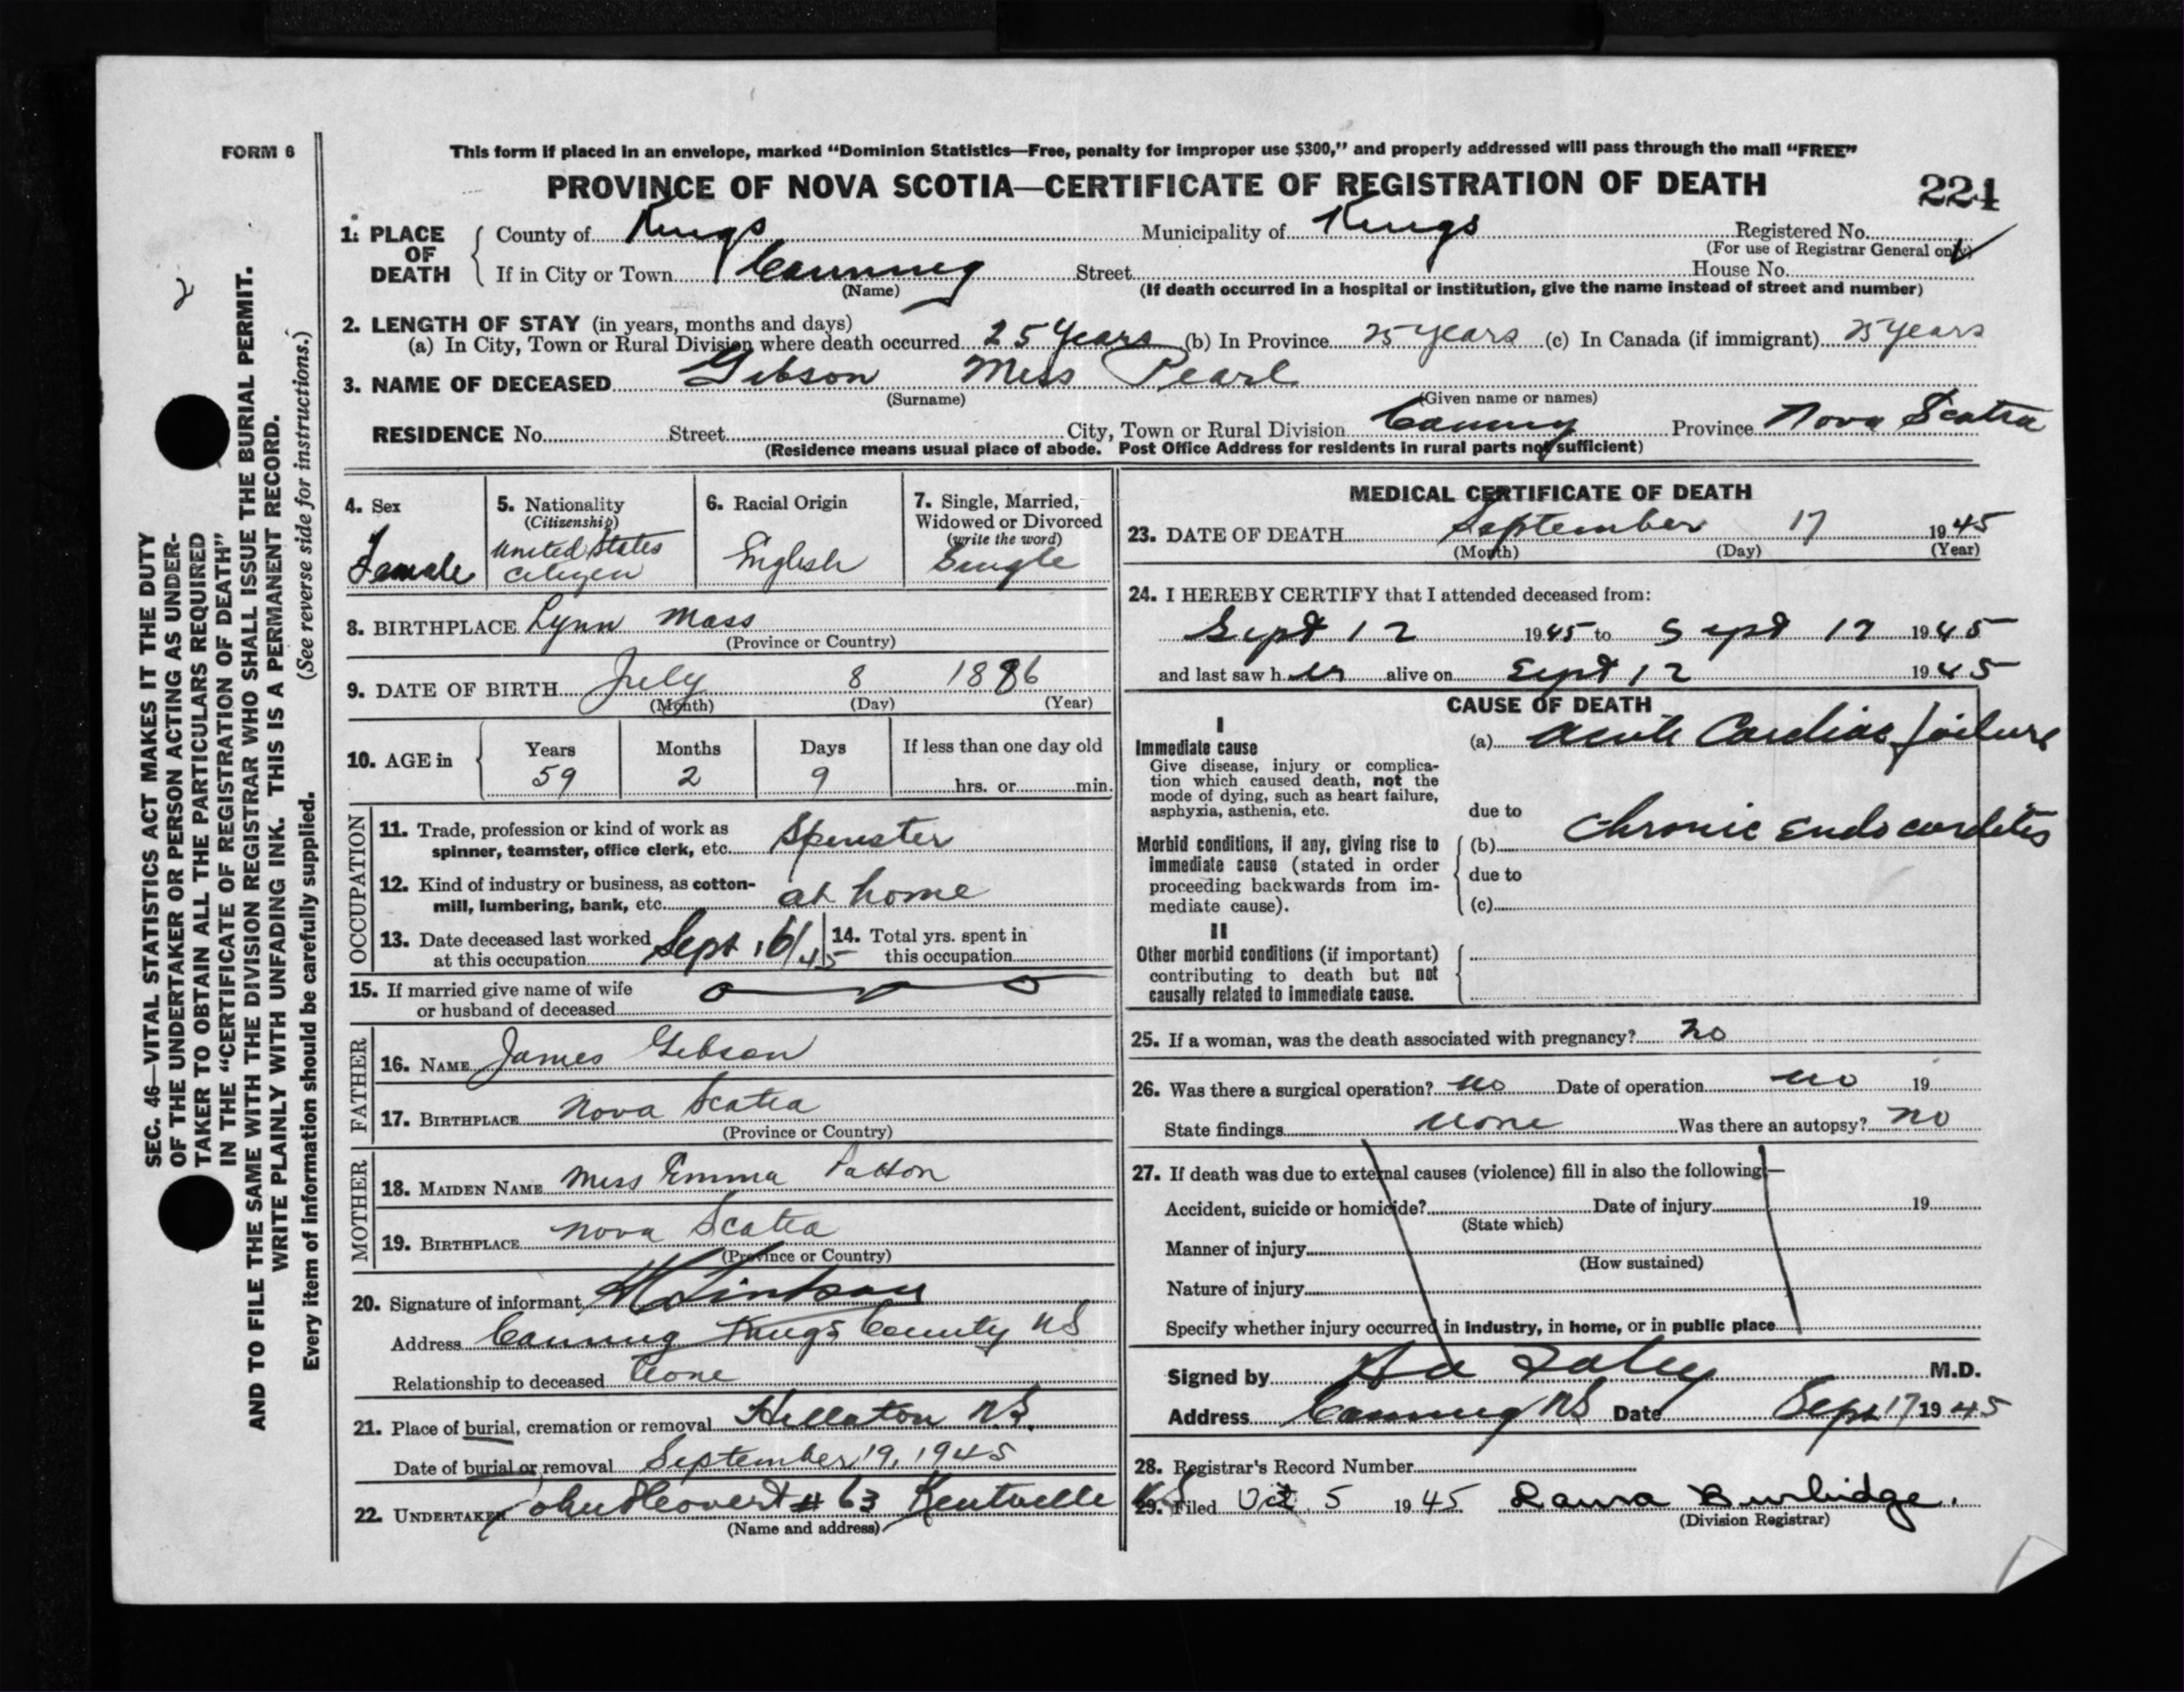 FORM 6
This form if placed in an envelope, marked “Dominion Statistics—Free, penalty for improper use $300,” and properly addressed will pass through the mail “FREE”
PROVINCE OF NOVA SCOTIA—CERTIFICATE OF REGISTRATION OF DEATH
224
1. PLACE OF DEATH
County of Kings Municipality of Kings Registered No.
(For use of Registrar General only)
If in City or Town Canning Street House No.
(Name) (If death occurred in a hospital or institution, give the name instead of street and number)
2. LENGTH OF STAY (in years, months and days)
(a) In City, Town or Rural Division where death occurred 25 Years (b) In Province 25 years (c) In Canada (if immigrant) 25 years
3. NAME OF DECEASED Gibson Miss Pearl
(Surname) (Given name or names)
RESIDENCE No. Street City, Town or Rural Division Canning Province Nova Scotia
(Residence means usual place of abode. Post Office Address for residents in rural parts not sufficient)
4. Sex
Female
5. Nationality
(Citizenship)
United States
Citizen
6. Racial Origin
English
7. Single, Married,
Widowed or Divorced
(write the word)
Single
8. BIRTHPLACE Lynn Mass
(Province or Country)
9. DATE OF BIRTH July 8 1886
(Month) (Day) (Year)
10. AGE in
Years Months Days If less than one day old
59 2 9 hrs. or min.
OCCUPATION
11. Trade, profession or kind of work as
spinner, teamster, office clerk, etc. Spinster
12. Kind of industry or business, as cotton-
mill, lumbering, bank, etc. at home
13. Date deceased last worked
at this occupation Sept 16/45
14. Total yrs. spent in
this occupation
15. If married give name of wife
or husband of deceased
FATHER
16. NAME James Gibson
17. BIRTHPLACE Nova Scotia
(Province or Country)
MOTHER
18. MAIDEN NAME Miss Emma Patton
19. BIRTHPLACE Nova Scotia
(Province or Country)
20. Signature of informant
Address Canning Kings County NS
Relationship to deceased None
21. Place of burial, cremation or removal Hillaton N.S.
Date of burial or removal September 19, 1945
22. UNDERTAKER # 63 Kentville N.S
(Name and address)
MEDICAL CERTIFICATE OF DEATH
23. DATE OF DEATH September 17 1945
(Month) (Day) (Year)
24. I HEREBY CERTIFY that I attended deceased from:
Sept 12 1945 to Sept 12 1945
and last saw her alive on Sept 12 1945
CAUSE OF DEATH
I
Immediate cause
Give disease, injury or complica-
tion which caused death, not the
mode of dying, such as heart failure,
asphyxia, asthenia, etc.
(a) acute Cardiac failure
due to
Morbid conditions, if any, giving rise to
immediate cause (stated in order
proceeding backwards from im-
mediate cause).
(b) Chronic Endocarditis
due to
(c)
II
Other morbid conditions (if important)
contributing to death but not
causally related to immediate cause.
25. If a woman, was the death associated with pregnancy? no
26. Was there a surgical operation? no Date of operation no 19
State findings none Was there an autopsy? no
27. If death was due to external causes (violence) fill in also the following:—
Accident, suicide or homicide? Date of injury 19
(State which)
Manner of injury
(How sustained)
Nature of injury
Specify whether injury occurred in industry, in home, or in public place
Signed by M.D.
Address Canning NS Date Sept 17 1945
28. Registrar's Record Number
29. Filed Oct 5 1945 Laura Burbidge.
(Division Registrar)
SEC. 46—VITAL STATISTICS ACT MAKES IT THE DUTY
OF THE UNDERTAKER OR PERSON ACTING AS UNDER-
TAKER TO OBTAIN ALL THE PARTICULARS REQUIRED
IN THE “CERTIFICATE OF REGISTRATION OF DEATH”
AND TO FILE THE SAME WITH THE DIVISION REGISTRAR WHO SHALL ISSUE THE BURIAL PERMIT.
WRITE PLAINLY WITH UNFADING INK. THIS IS A PERMANENT RECORD.
Every item of information should be carefully supplied. (See reverse side for instructions.)